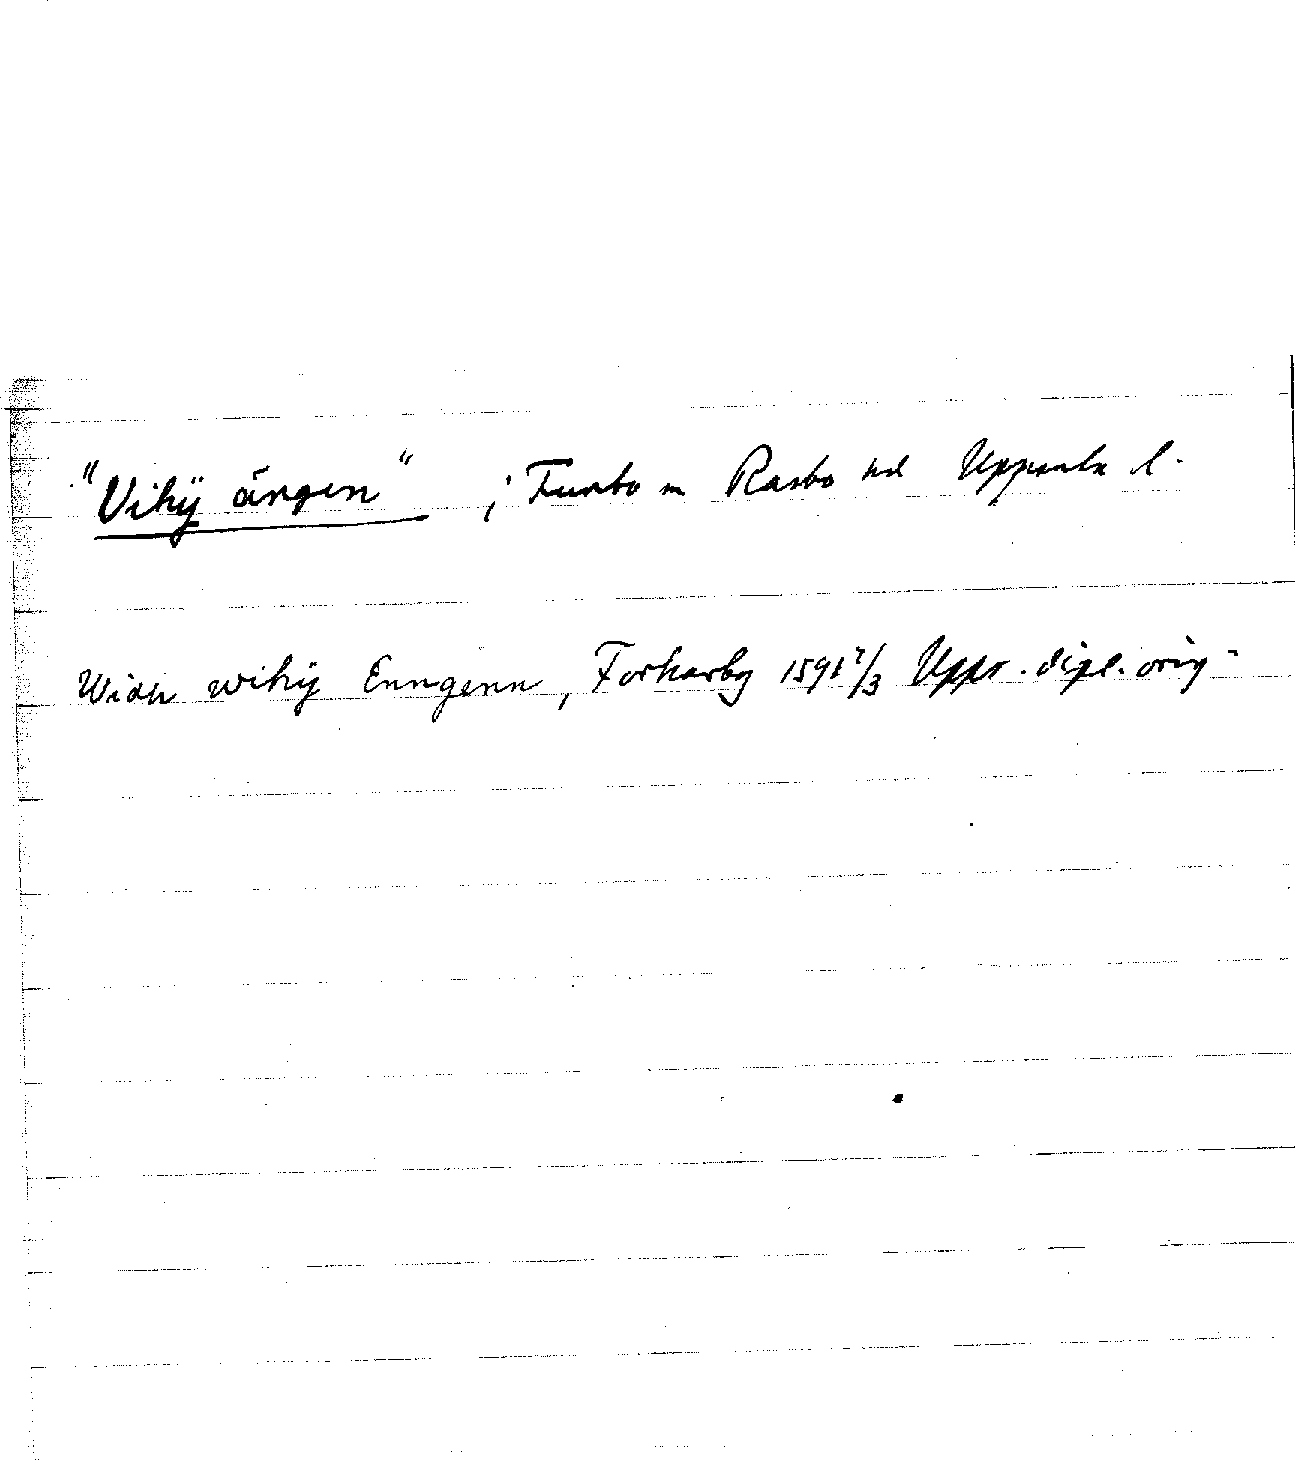 "Vihÿ ängen" i Funbo sn Rasbo hd Uppsala l.
Widh wihÿ Enngenn, Forkarby 1591 7/3 Upps. dipl. orig